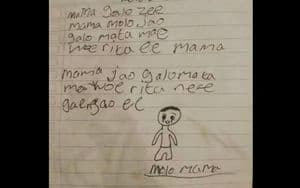 mama galo zee
mama molo jao
galo mata mae
woe rita ee mama
mama jao galo mata
ma woe rita nese
molo mama